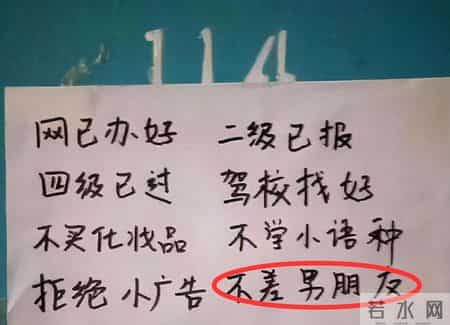 114
网已办好 二级已报
四级已过 驾校找好
不买化妆品 不学小语种
拒绝小广告 不差男朋友
若水网